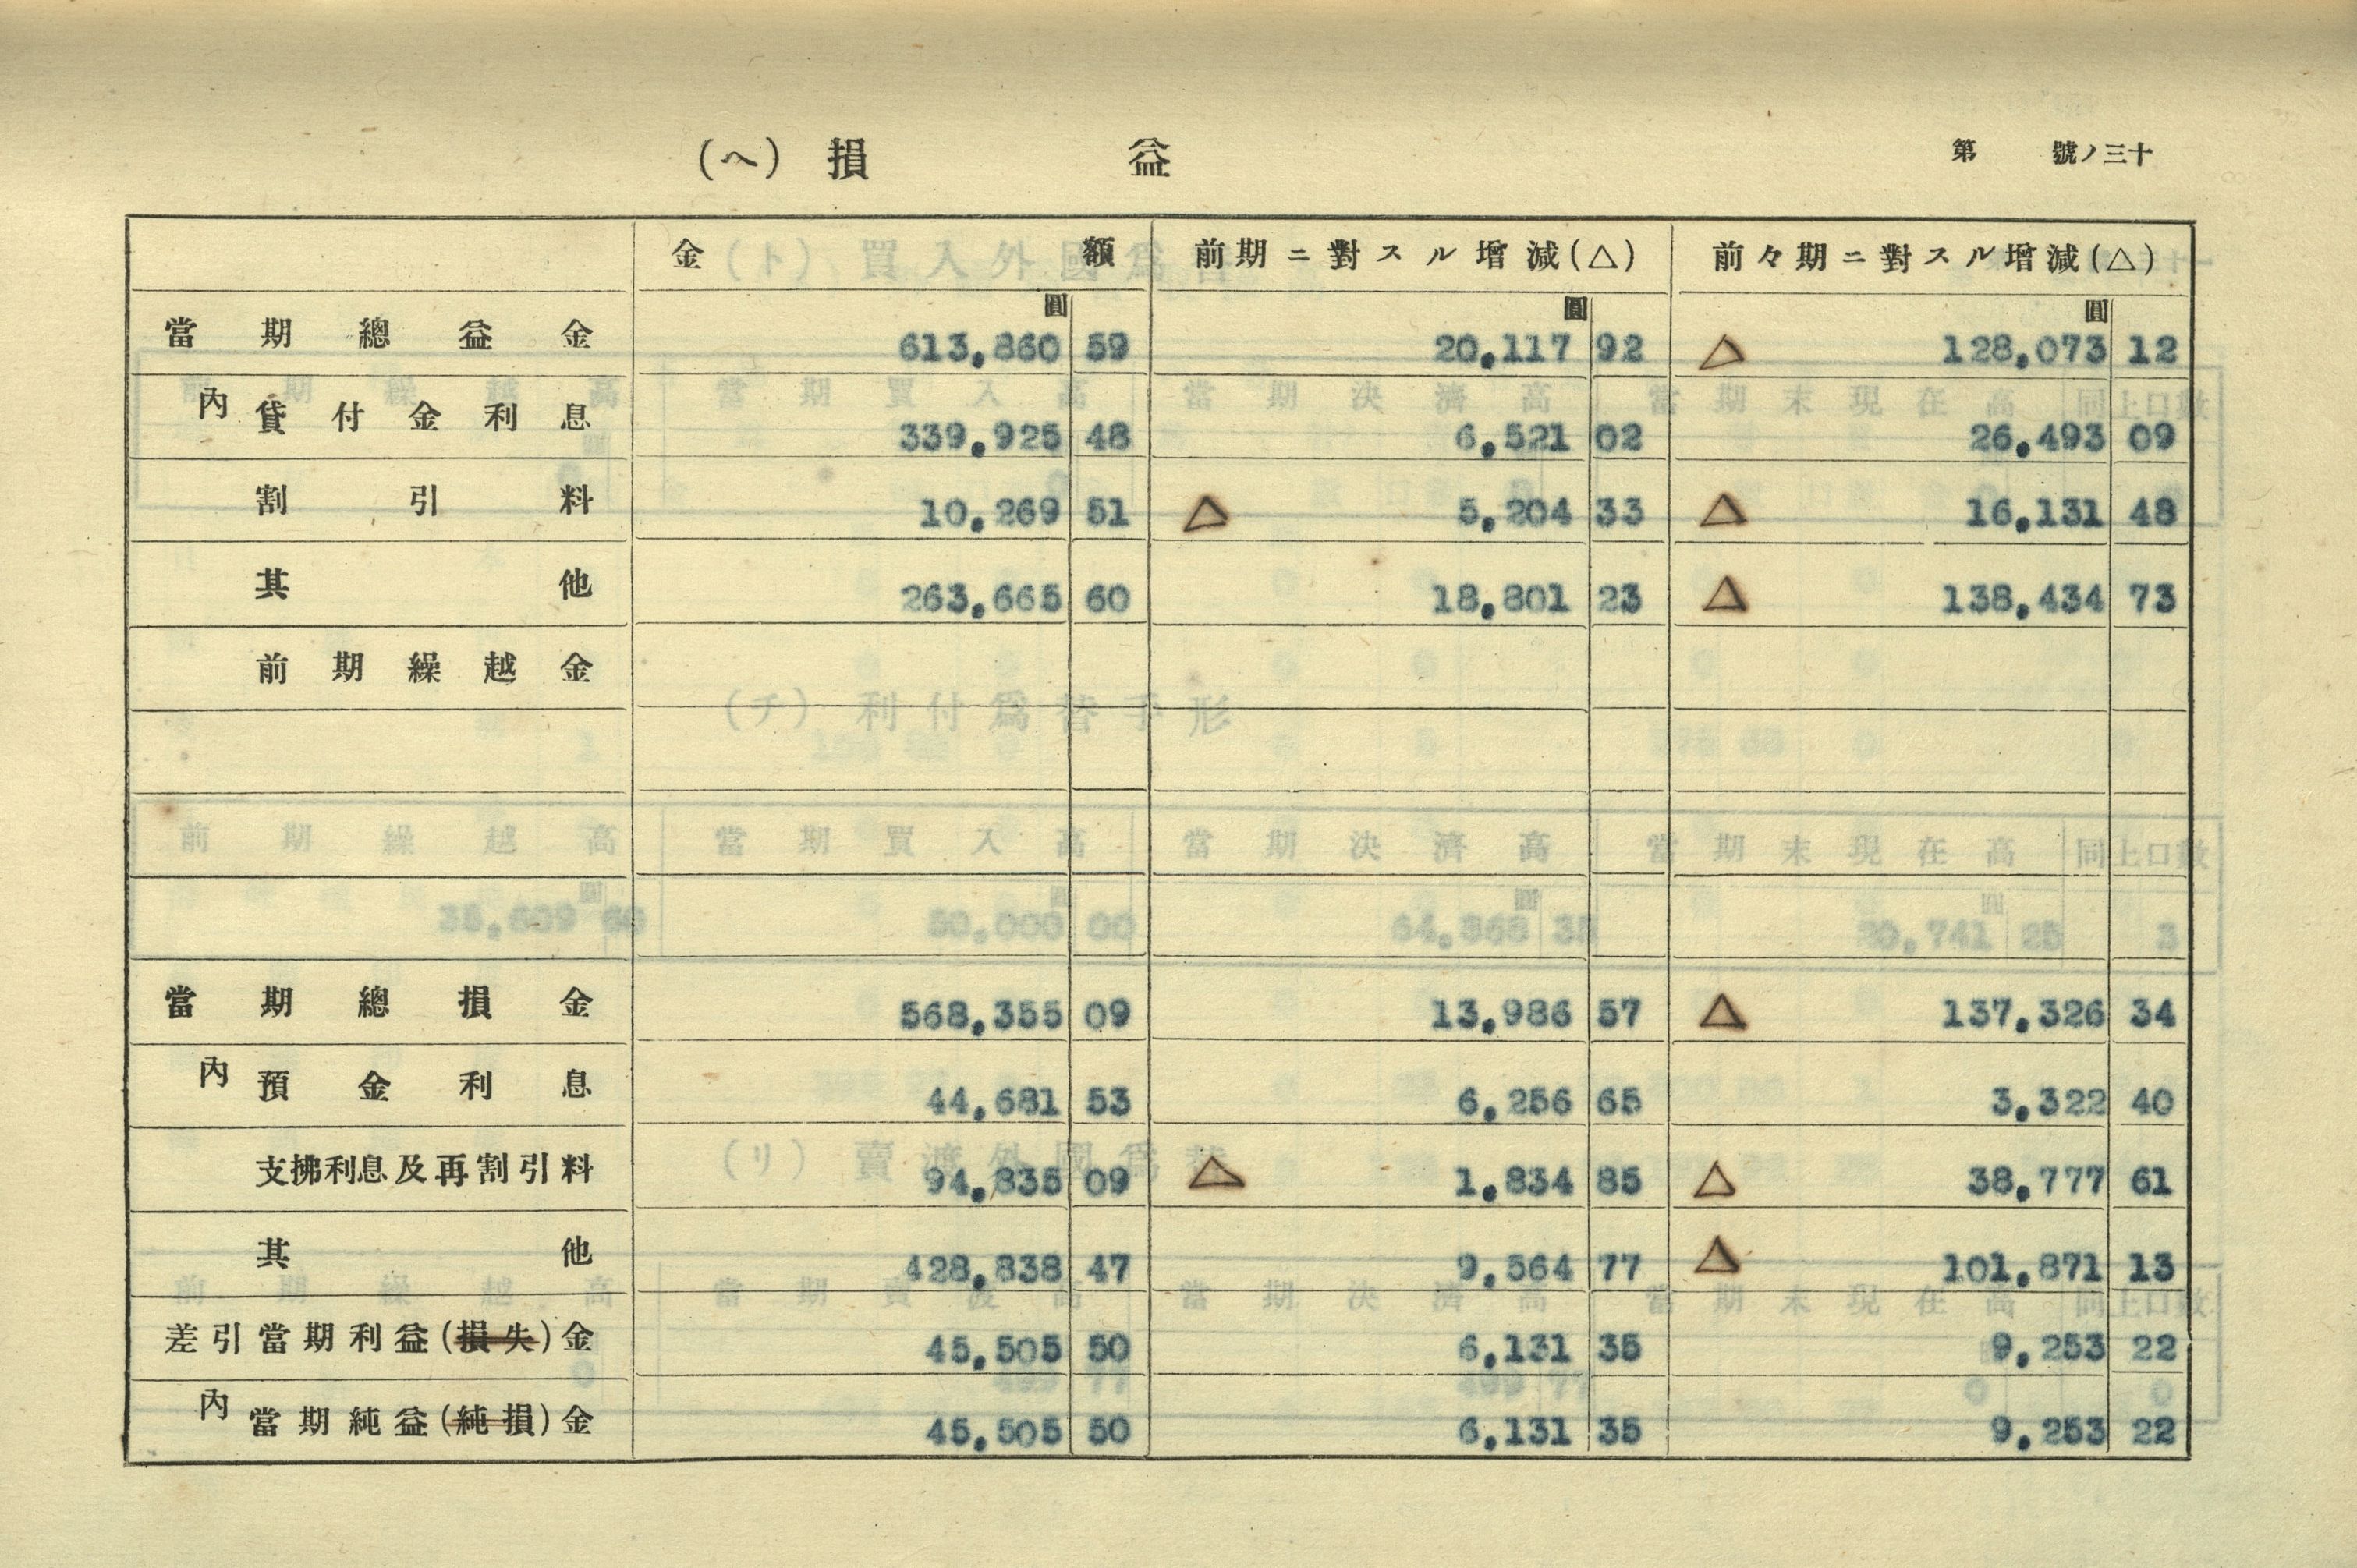 (ヘ) 損益
第 號ノ三十
金額 前期ニ對スル增減(△) 前々期ニ對スル增減(△)
圓 圓 圓
當期總益金 613,860 59 20,117 92 △ 128,073 12
內 貸付金利息 339,925 48 6,521 02 26,493 09
割引料 10,269 51 △ 5,204 33 △ 16,131 48
其他 263,665 60 18,801 23 △ 138,434 73
前期繰越金
當期總損金 568,355 09 13,986 57 △ 137,326 34
內 預金利息 44,681 53 6,256 65 3,322 40
支拂利息及再割引料 94,835 09 △ 1,834 85 △ 38,777 61
其他 428,838 47 9,564 77 △ 101,871 13
差引當期利益(損失)金 45,505 50 6,131 35 9,253 22
內 當期純益(純損)金 45,505 50 6,131 35 9,253 22